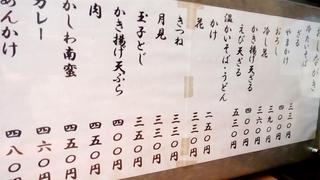 ざる
やまかけ 三三〇円
おろし 三九〇円
冷し花 三六〇円
かき揚げ天ざる
えび天ざる 五三〇円
温かいそば・うどん
かけ 二五〇円
花
きつね 三三〇円
月見 三三〇円
玉子とじ 三五〇円
かき揚げ天ぷら 四〇〇円
肉 四五〇円
かしわ南蛮 四五〇円
カレー 四六〇円
あんかけ 四八〇円